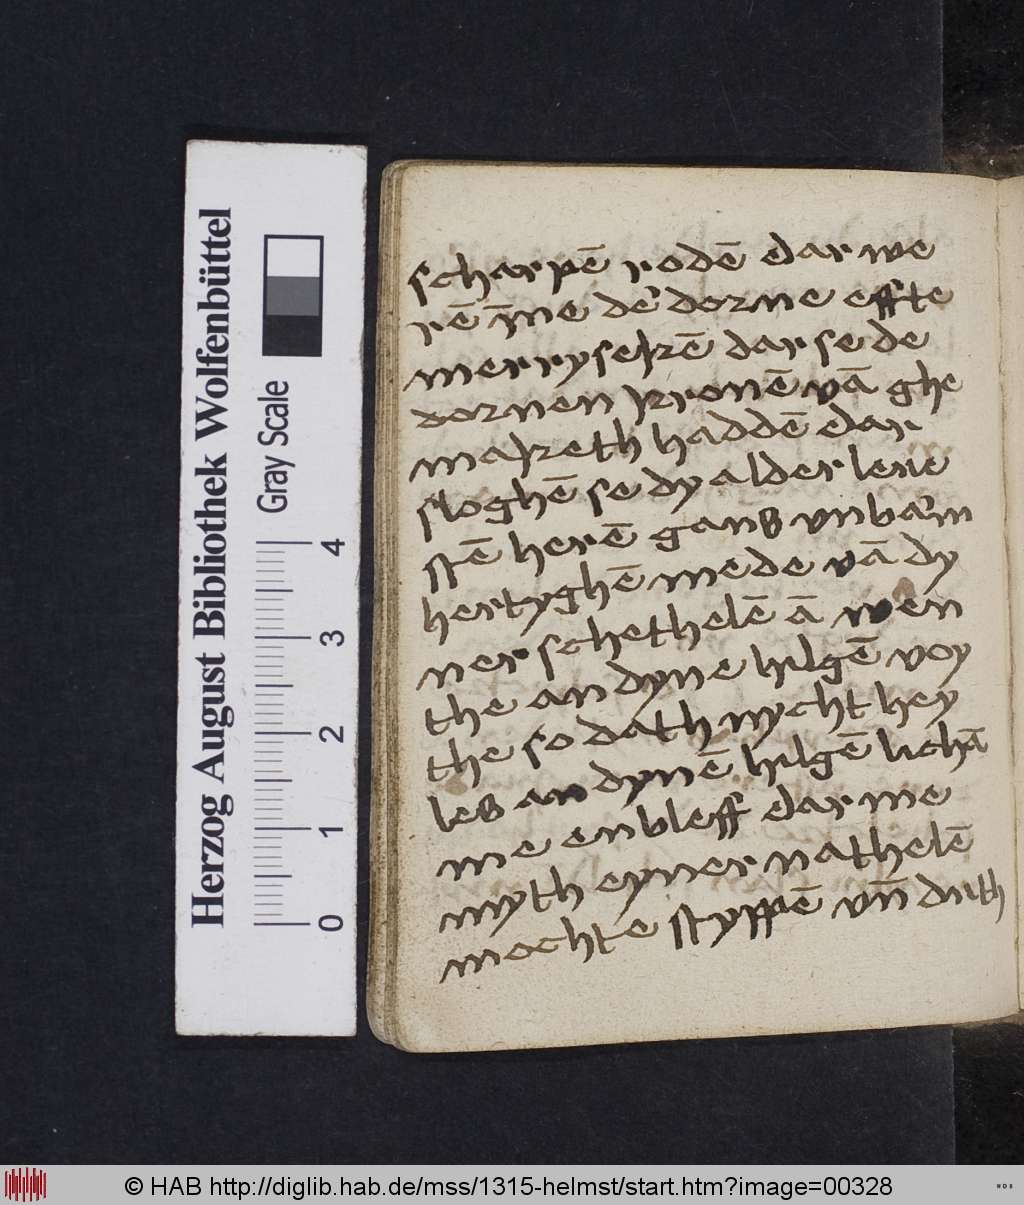 scharpē rodē dar we
rē ȷ̄ne de dorne effte
merrysekē dar se de
dornen kronē vā ghe
maketh haddē dar
sloghē se dy alder leue
stē herē gans vnbarm
hertyghē mede vā dy
ner schethelē ā wen
the an dyne hilgē voy
the so dath nycht hey
les an dynē hilgē lichā
me en bleff dar me
myth eyner nathelē
mochte styppē vn̄ duth
Herzog August Bibliothek Wolfenbüttel
Gray Scale
0 1 2 3 4
© HAB http://diglib.hab.de/mss/1315-helmst/start.htm?image=00328